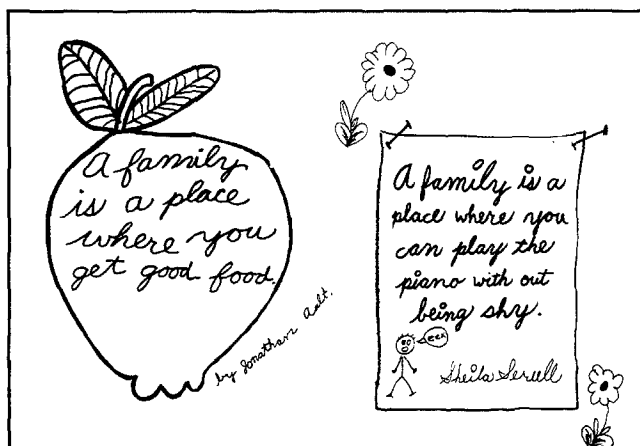 A family
is a place
where you
get good food.
by Jonathan Ault.
A family is a
place where you
can play the
piano with out
being shy.
eek
Sheila Serull